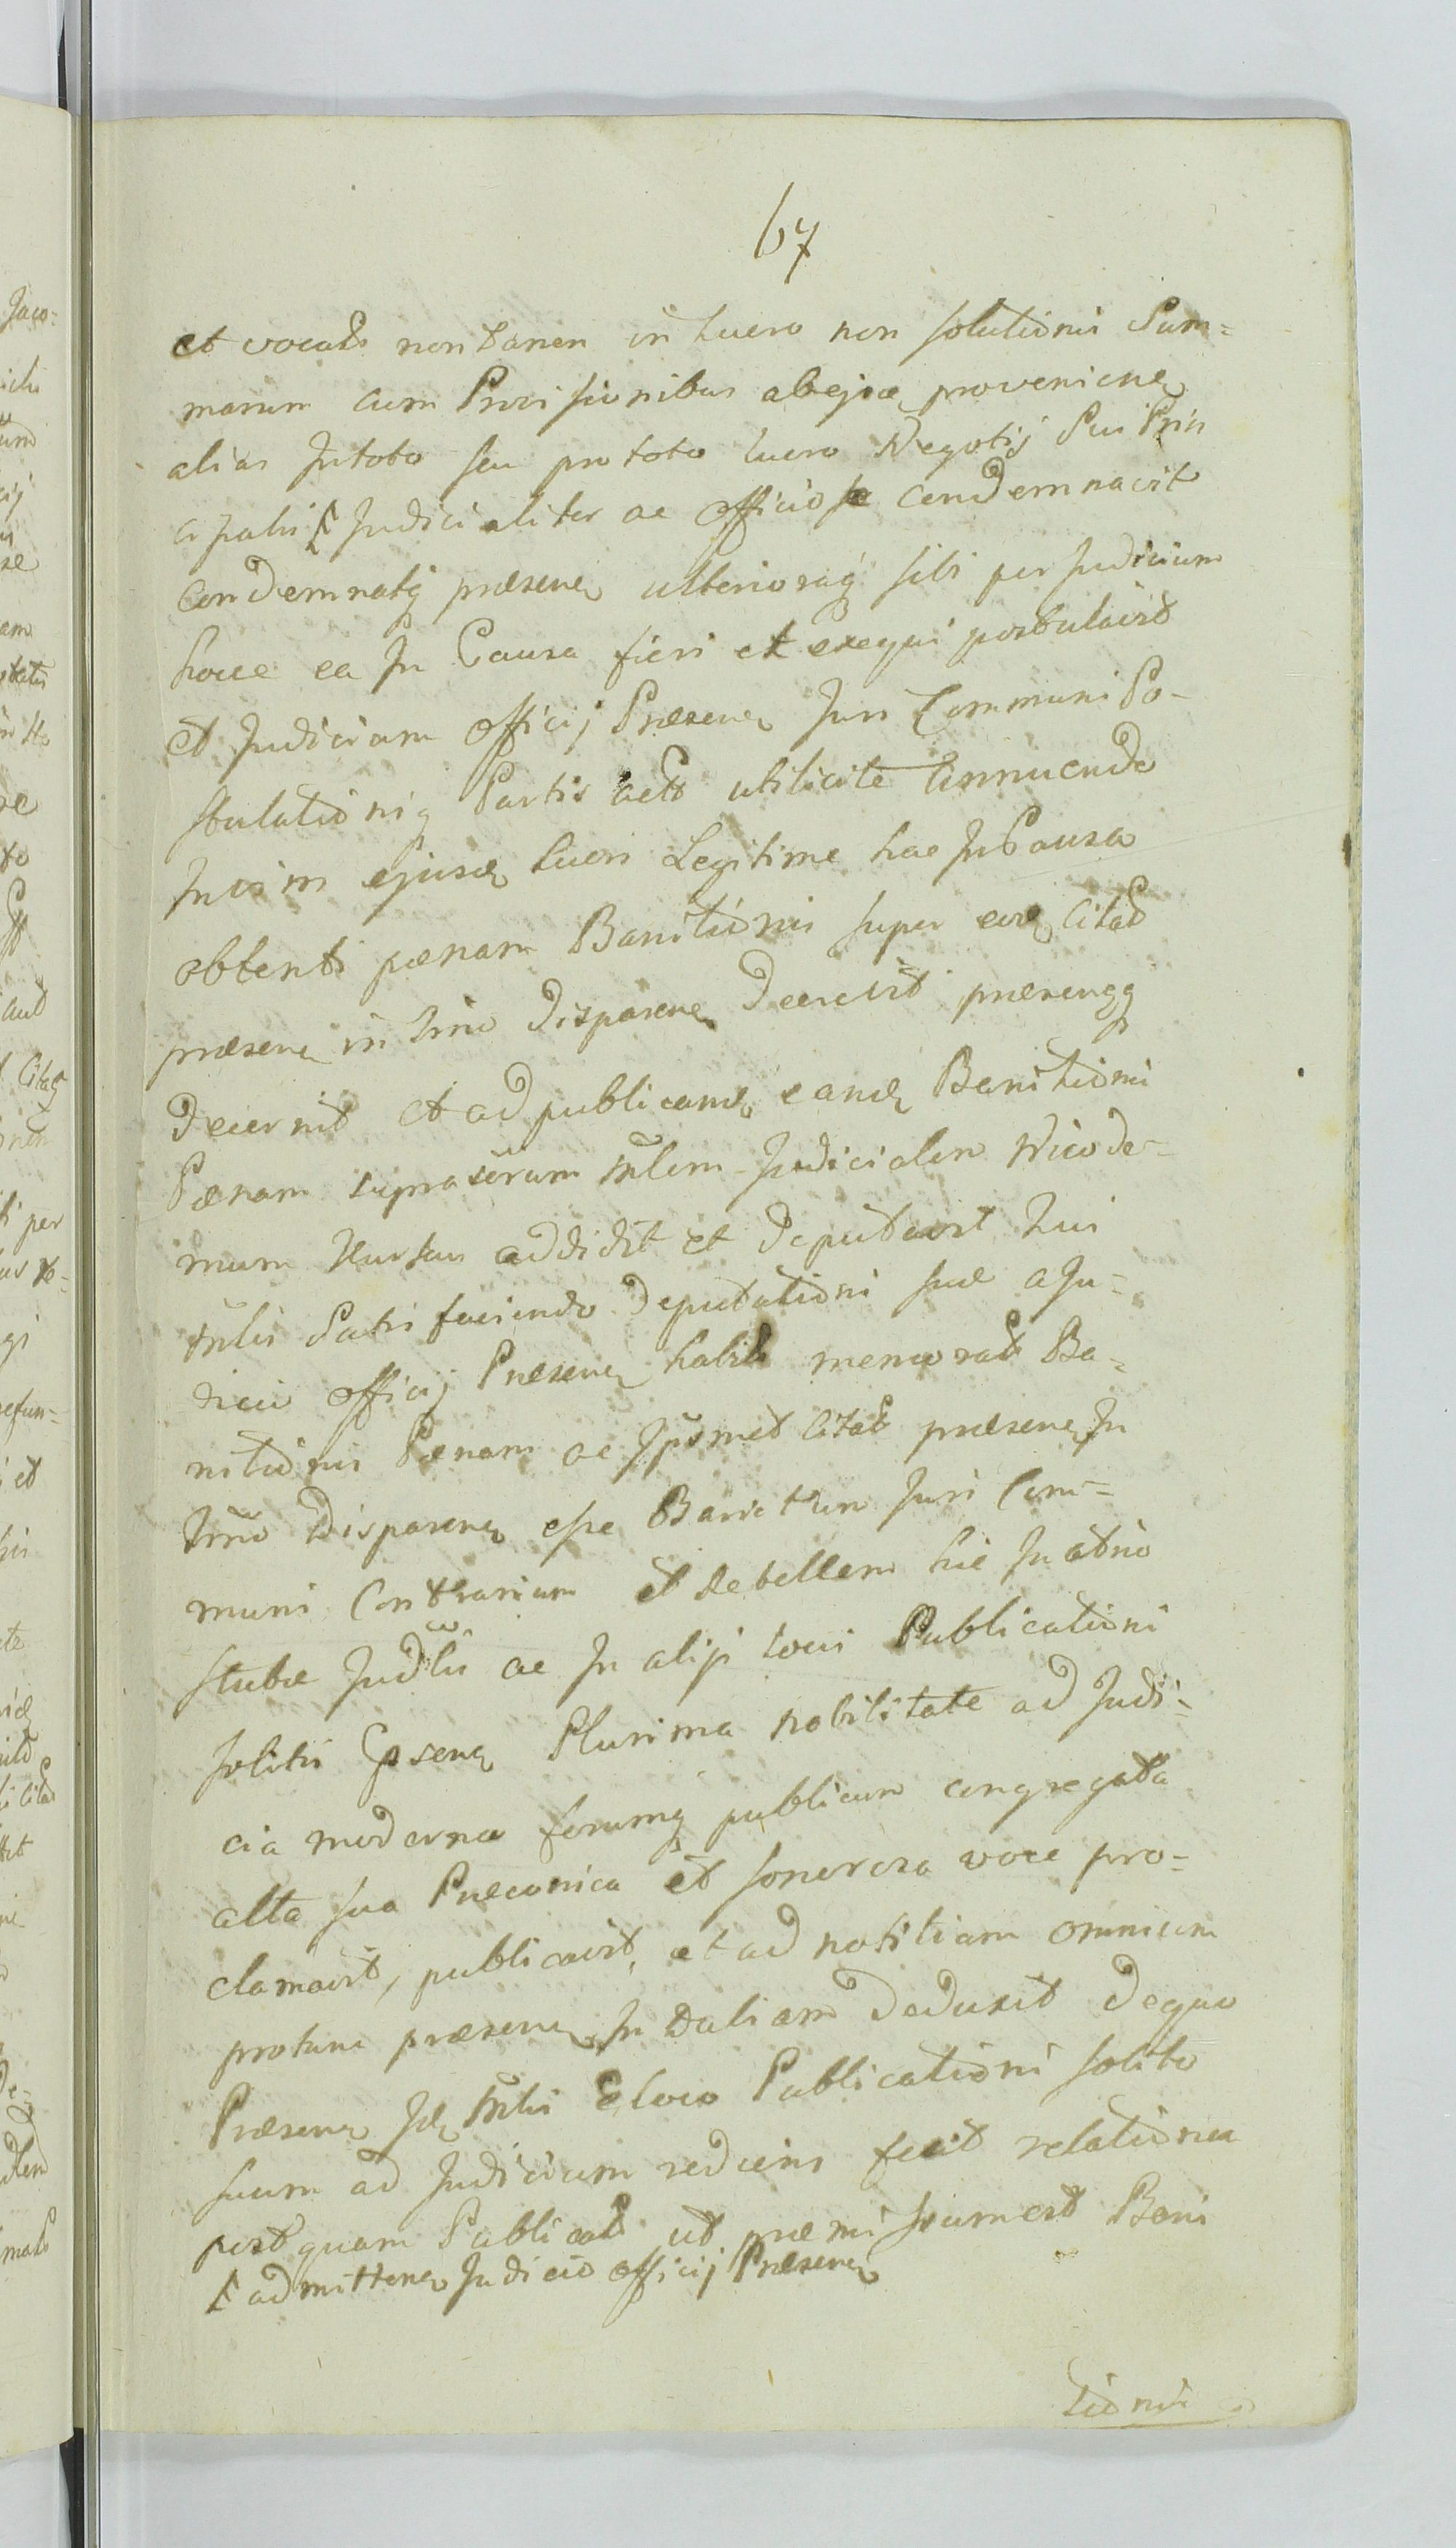 67
et vocat non tamen in lucro non solutionis Sum=
marum cum Provisionibus abejsce provenien
alias In toto seu pro toto lucro Negotij Sui Prin
cipalis Judicialiter ac officiose condemnavit
Condemnatq praesen ulterioraq sibi per Judicium
hocce ea In Causa fieri et exequi postulavit
et Judicium officij Praesen Juri Communi Po-
stulationiq Partis act utilicite annuendo
In vim ejusd lucri Legitime hac In Causa
obtenti paenam Banitionis super eosd Citat
praesen in Trno Disparen Decrevit praesenqq
Decernit et ad publicand eand Banitionis
Paenam suprascrum Mlem Judicialem Nicode-
mum Hurhan addidit et deputavit Qui
Mlis Satisfaciendo Deputationi suae a Ju-
dicio officij Praesen habit memorat Ba-
nitionis Paenam ac Ipsmet Citat praesen In
Trno Disparen esse Banitum Juri Com=
muni Contrarium et Rebellem hic In atrio
stubae Judlis ac In alijs locis Publicationi
solitis Cpsen Plurima nobilitate ad Judi-
cia moderna forumq publicum congregata
alta sua Praeconica et sonorosa voce pro=
clamavit, publicavit, et ad notitiam omnium
protunc praesen In Taliam deduxit de quo
Praesen Id Mlis E loco Publicationi solito
suum ad Judicium rediens fecit relationem
postquam Publicat ut praemissum est Bani
admitten Judicio officij Praesen
tionis